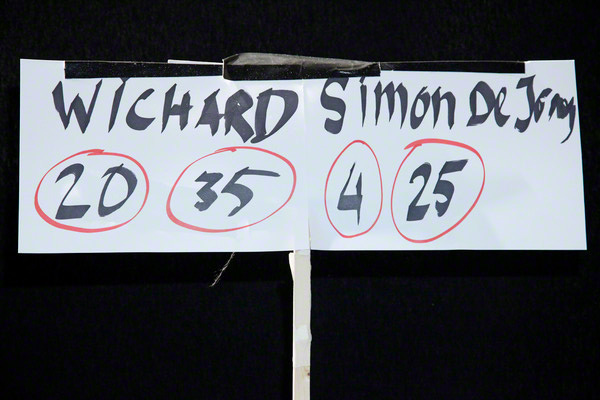 WICHARD Simon De Jong
20 35 4 25